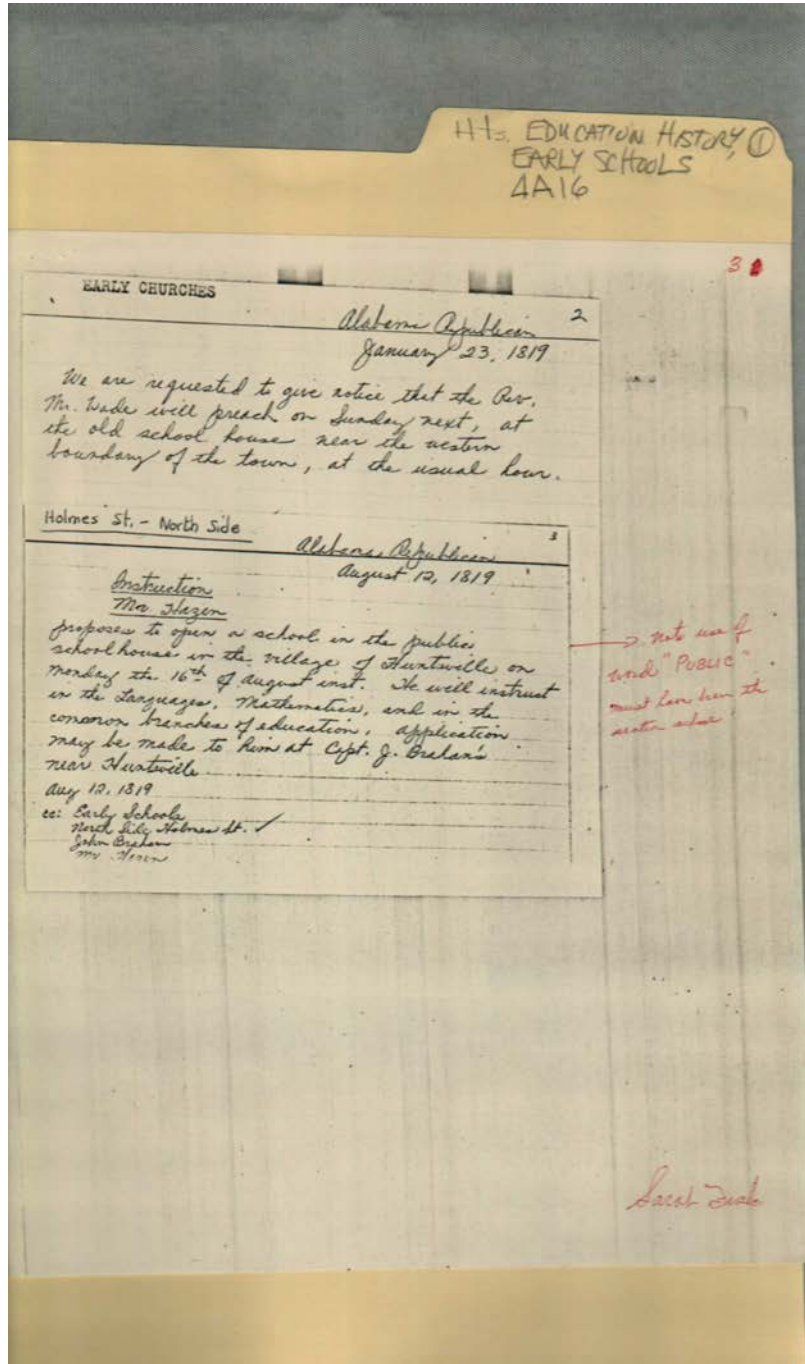 Hts. EDUCATION HISTORY, ①
EARLY SCHOOLS
4A16
3
EARLY CHURCHES
2
Alabama Republican
January 23, 1819
We are requested to give notice that the Rev.
Mr. Wade will preach on Sunday next, at
the old school house near the western
boundary of the town, at the usual hour.
Holmes St. - North Side
3
Alabama Republican
August 12, 1819
Instruction
Mr. Hazen
proposes to open a school in the public
schoolhouse in the village of Huntsville on
Monday the 16th of August inst. He will instruct
in the Languages, Mathematics, and in the
common branches of education. Application
may be made to him at Capt. J. Brahan's
near Huntsville
Aug 12, 1819
cc: Early Schools
North Side Holmes St. ✓
John Brahan
Mr
→ note use of
word "PUBLIC"
must have been the
Sarah